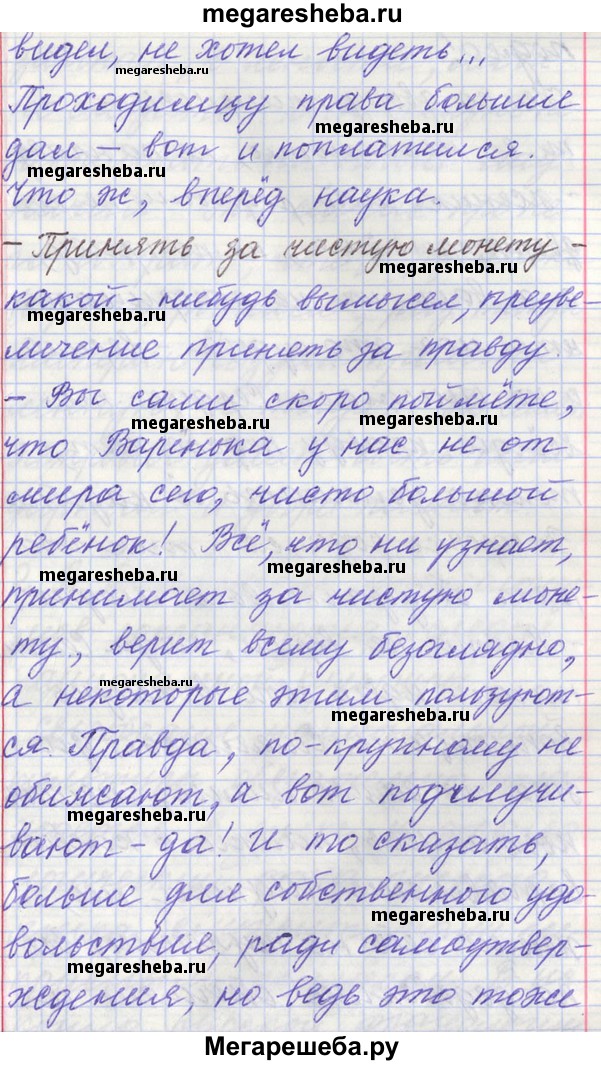 Мегарешеба.ру
megaresheba.ru
видел, не хотел видеть...
megaresheba.ru
Проходимцу права больше
megaresheba.ru
дал – вот и поплатился.
megaresheba.ru
Что ж, вперёд наука.
– Принять за чистую монету –
megaresheba.ru
какой-нибудь вымысел, преуве-
megaresheba.ru
личение принять за правду.
– Вы сами скоро поймёте,
megaresheba.ru
megaresheba.ru
что Варенька у нас не от
мира сего, чисто большой
megaresheba.ru
ребёнок! Всё, что ни узнает,
megaresheba.ru
принимает за чистую моне-
megaresheba.ru
ту, верит всему безоглядно,
megaresheba.ru
а некоторые этим пользуют-
megaresheba.ru
ся. Правда, по-крупному не
обижают, а вот подшучи-
megaresheba.ru
вают – да! И то сказать,
больше для собственного удо-
megaresheba.ru
вольствия, ради самоутвер-
megaresheba.ru
ждения, но ведь это тоже
megaresheba.ru
Мегарешеба.ру